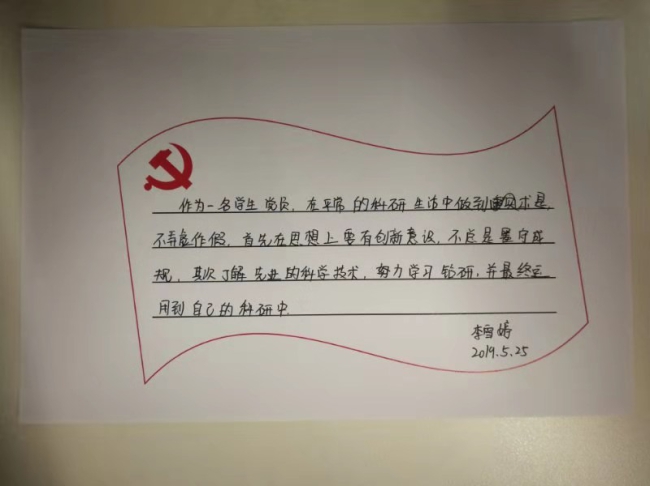 作为一名学生党员，在平常的科研生活中做到实求是
不弄虚作假，首先在思想上要有创新意识，不总是墨守成
规，其次了解先进的科学技术，努力学习钻研，并最终运
用到自己的科研中.
李雪婷
2019.5.25